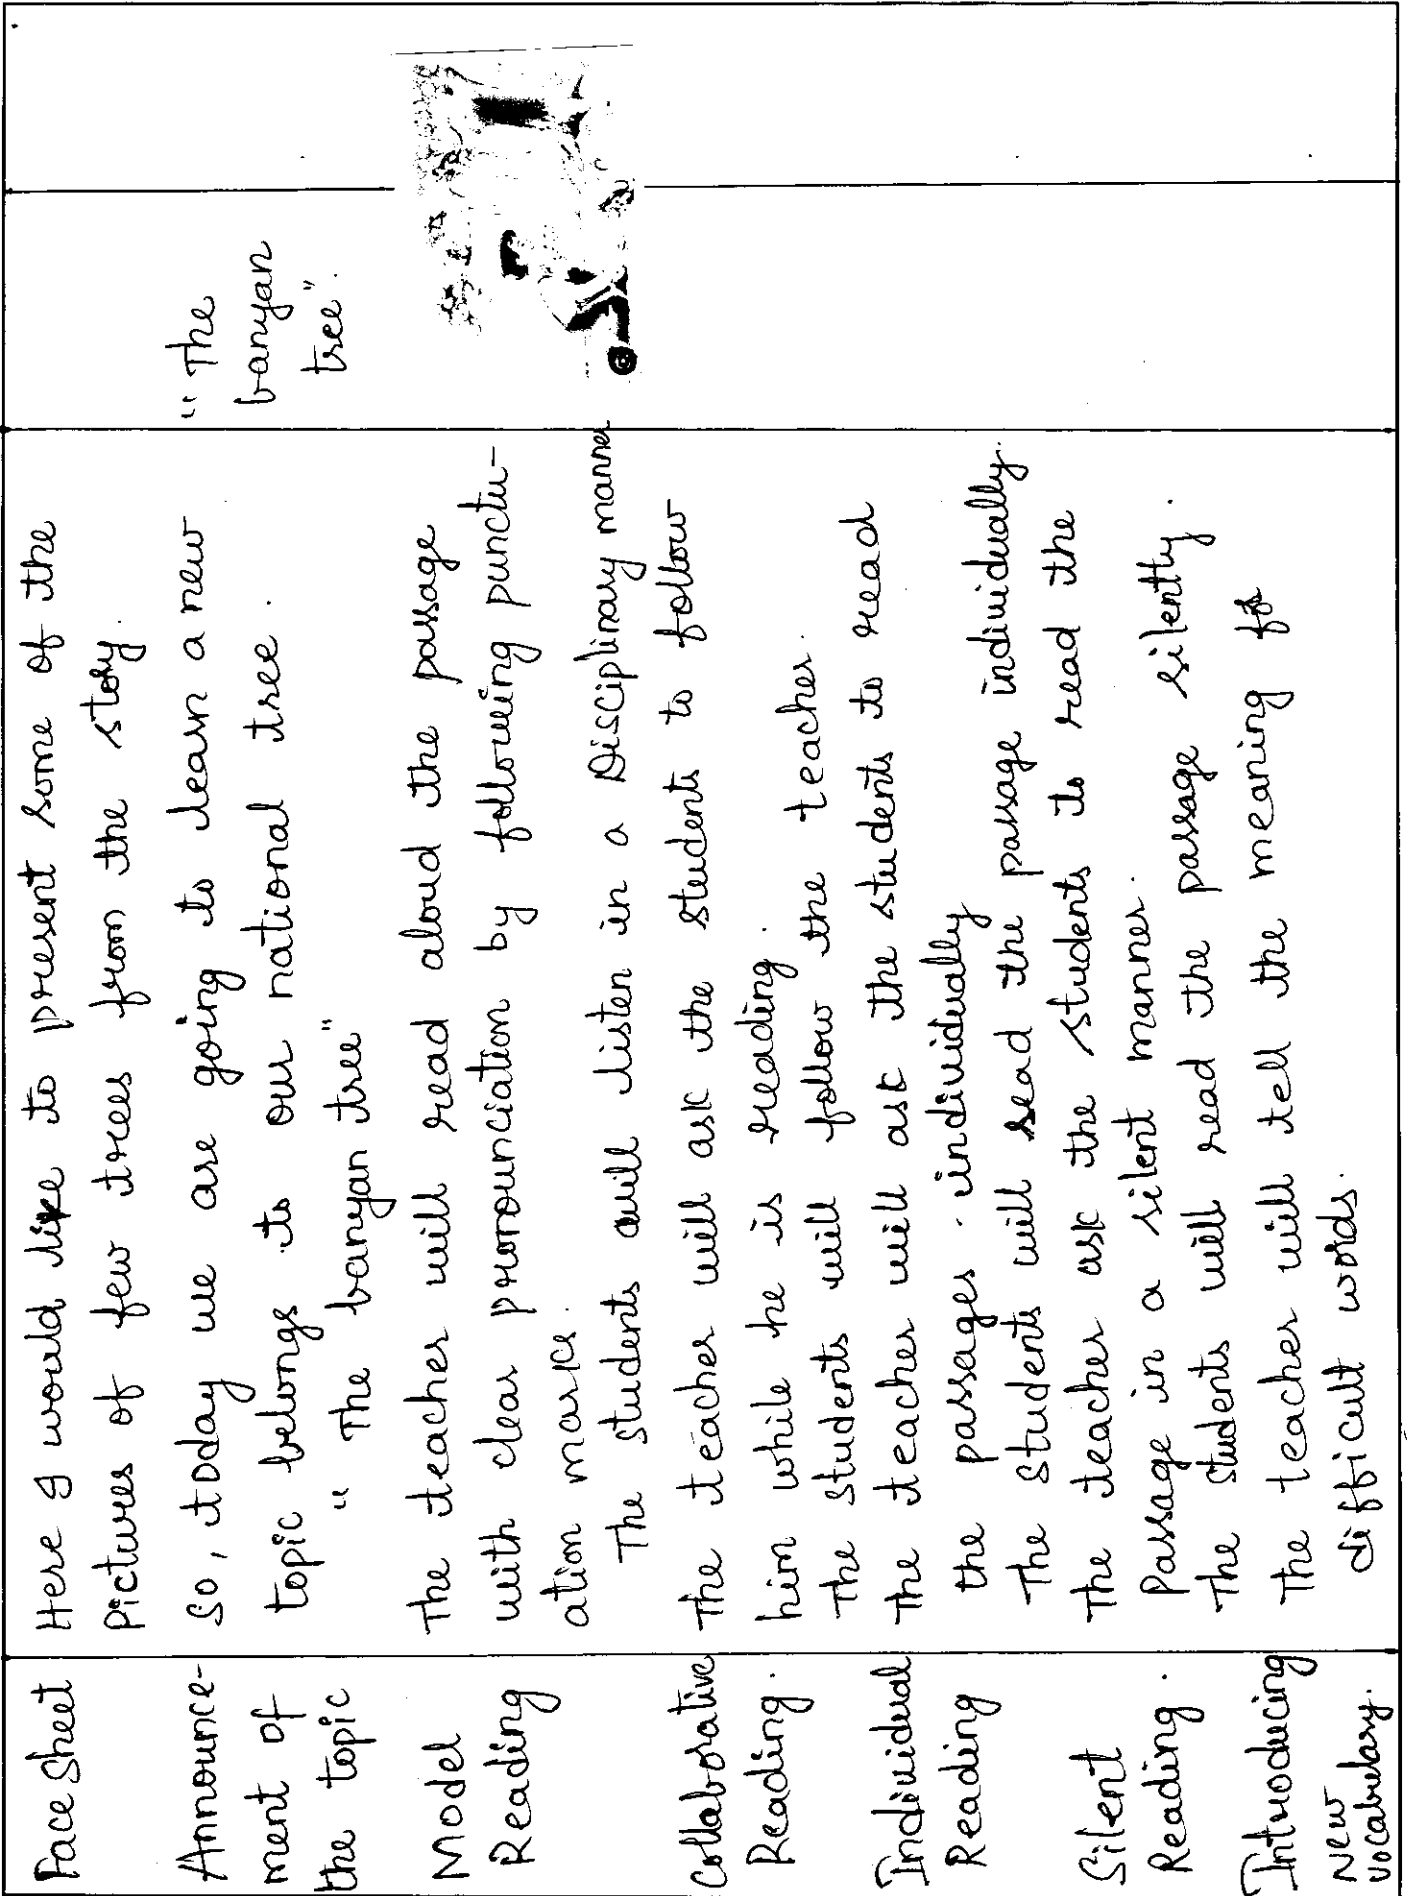 Face Sheet
Here I would like to present some of the
pictures of few trees from the story.
Announce-
ment of
the topic
So, today we are going to learn a new
topic belongs to our national tree.
" The banyan tree"
" The
banyan
tree".
Model
Reading
The teacher will read aloud the passage
with clear pronounciation by following punctu-
ation marks.
The students will listen in a Disciplinary manner
Collaborative
Reading.
The teacher will ask the students to follow
him while he is reading.
The students will follow the teacher.
Individual
Reading
The teacher will ask the students to read
the passages. individually
The students will read the passage individually.
Silent
Reading.
The teacher ask the students to read the
Passage in a silent manner.
The students will read the passage silently.
Introducing
New
Vocabulary.
The teacher will tell the meaning
difficult words.